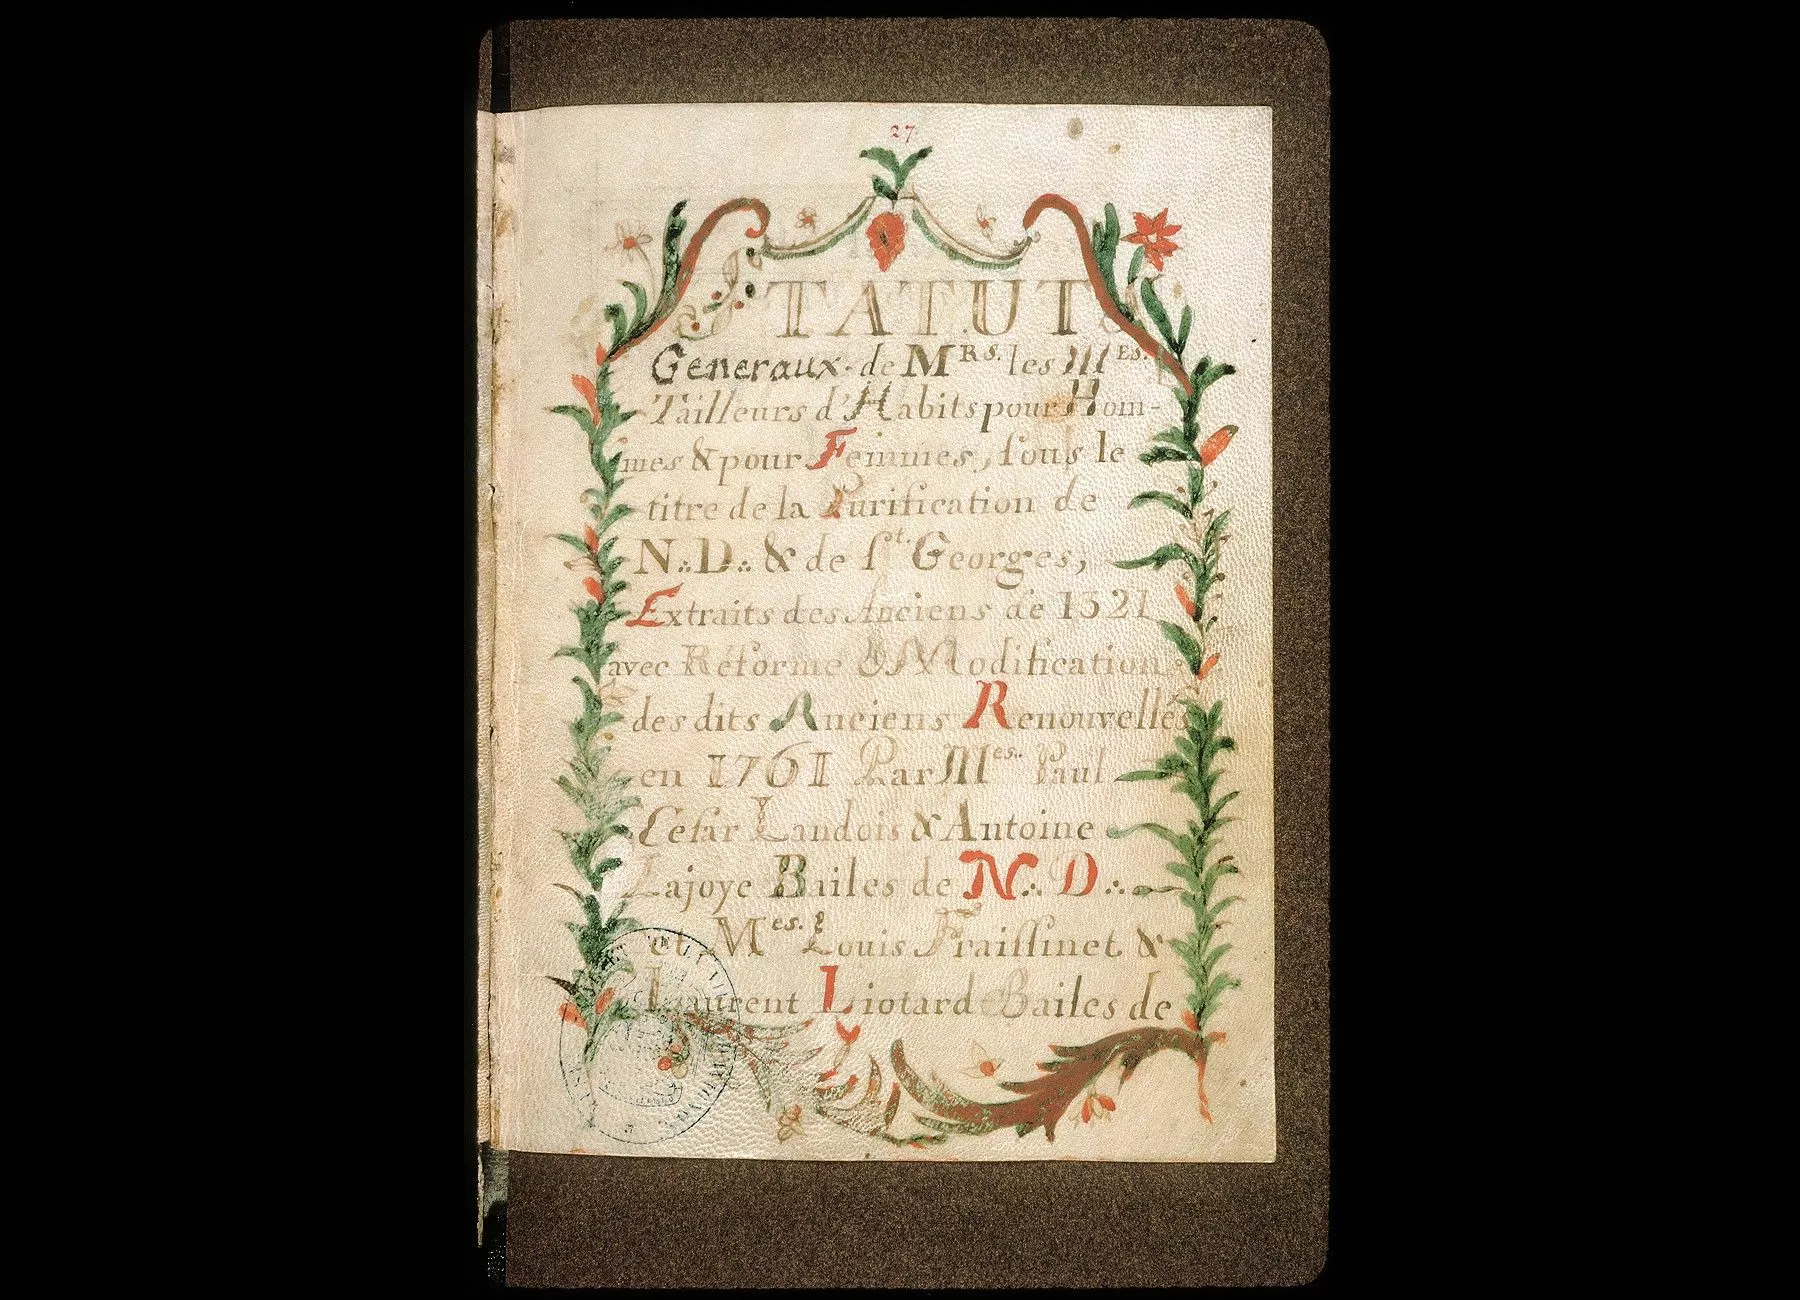 27.
STATUTS
Generaux de M^RS. les M^ES.
Tailleurs d'Habits pour Hom-
mes & pour Femmes, sous le
titre de la Purification de
N∴D∴ & de S^t. Georges,
Extraits des Anciens de 1321
avec Reforme & Modification
des dits Anciens Renouvellés
en 1761 Par M^es. Paul
César Landois & Antoine
Lajoye Bailes de N∴D∴
et M^es. Louis Fraissinet &
Laurent Liotard Bailes de